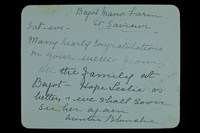 Bagot Manor Farm
St Saviour
Sat-eve-
Many hearty congratulations
on your success from
all the family at
Bagot - Hope Leslie is
better & we shall soon
see her again
Auntie Blanche